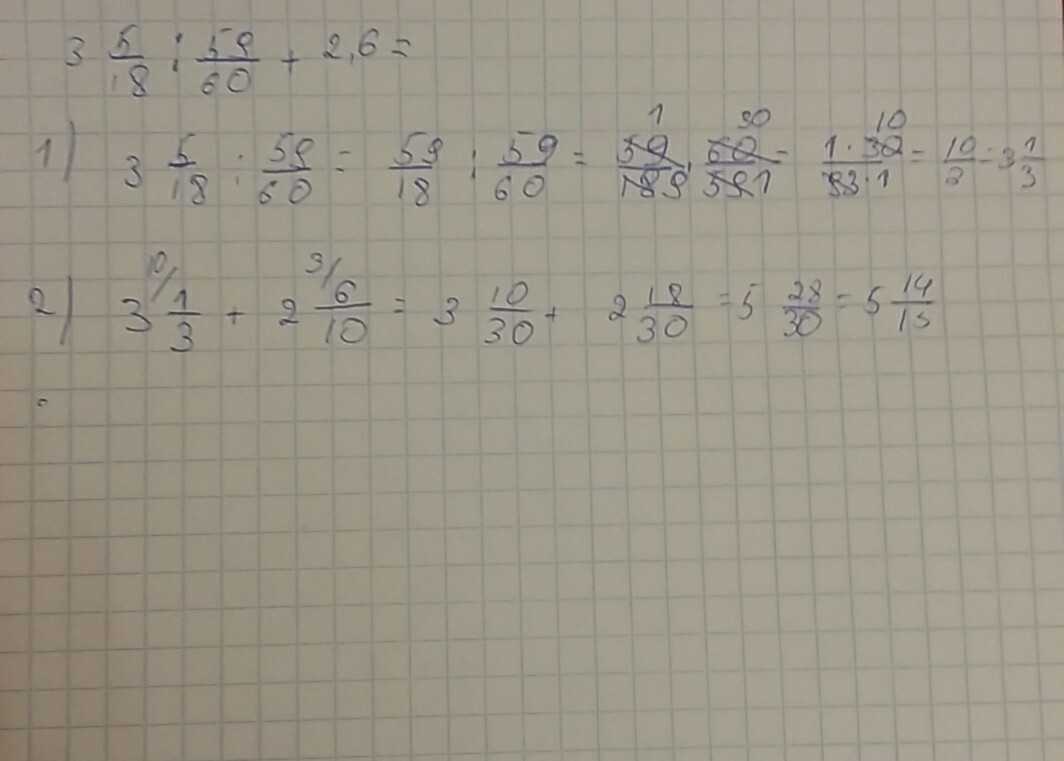 3 5/18 : 59/60 + 2,6 =
1) 3 5/18 : 59/60 = 59/18 : 59/60 = 59/18 · 60/59 = 1 · 30/9 · 1 = 10/3 = 3 1/3
2) 3 1/3 + 2 6/10 = 3 10/30 + 2 18/30 = 5 28/30 = 5 14/15